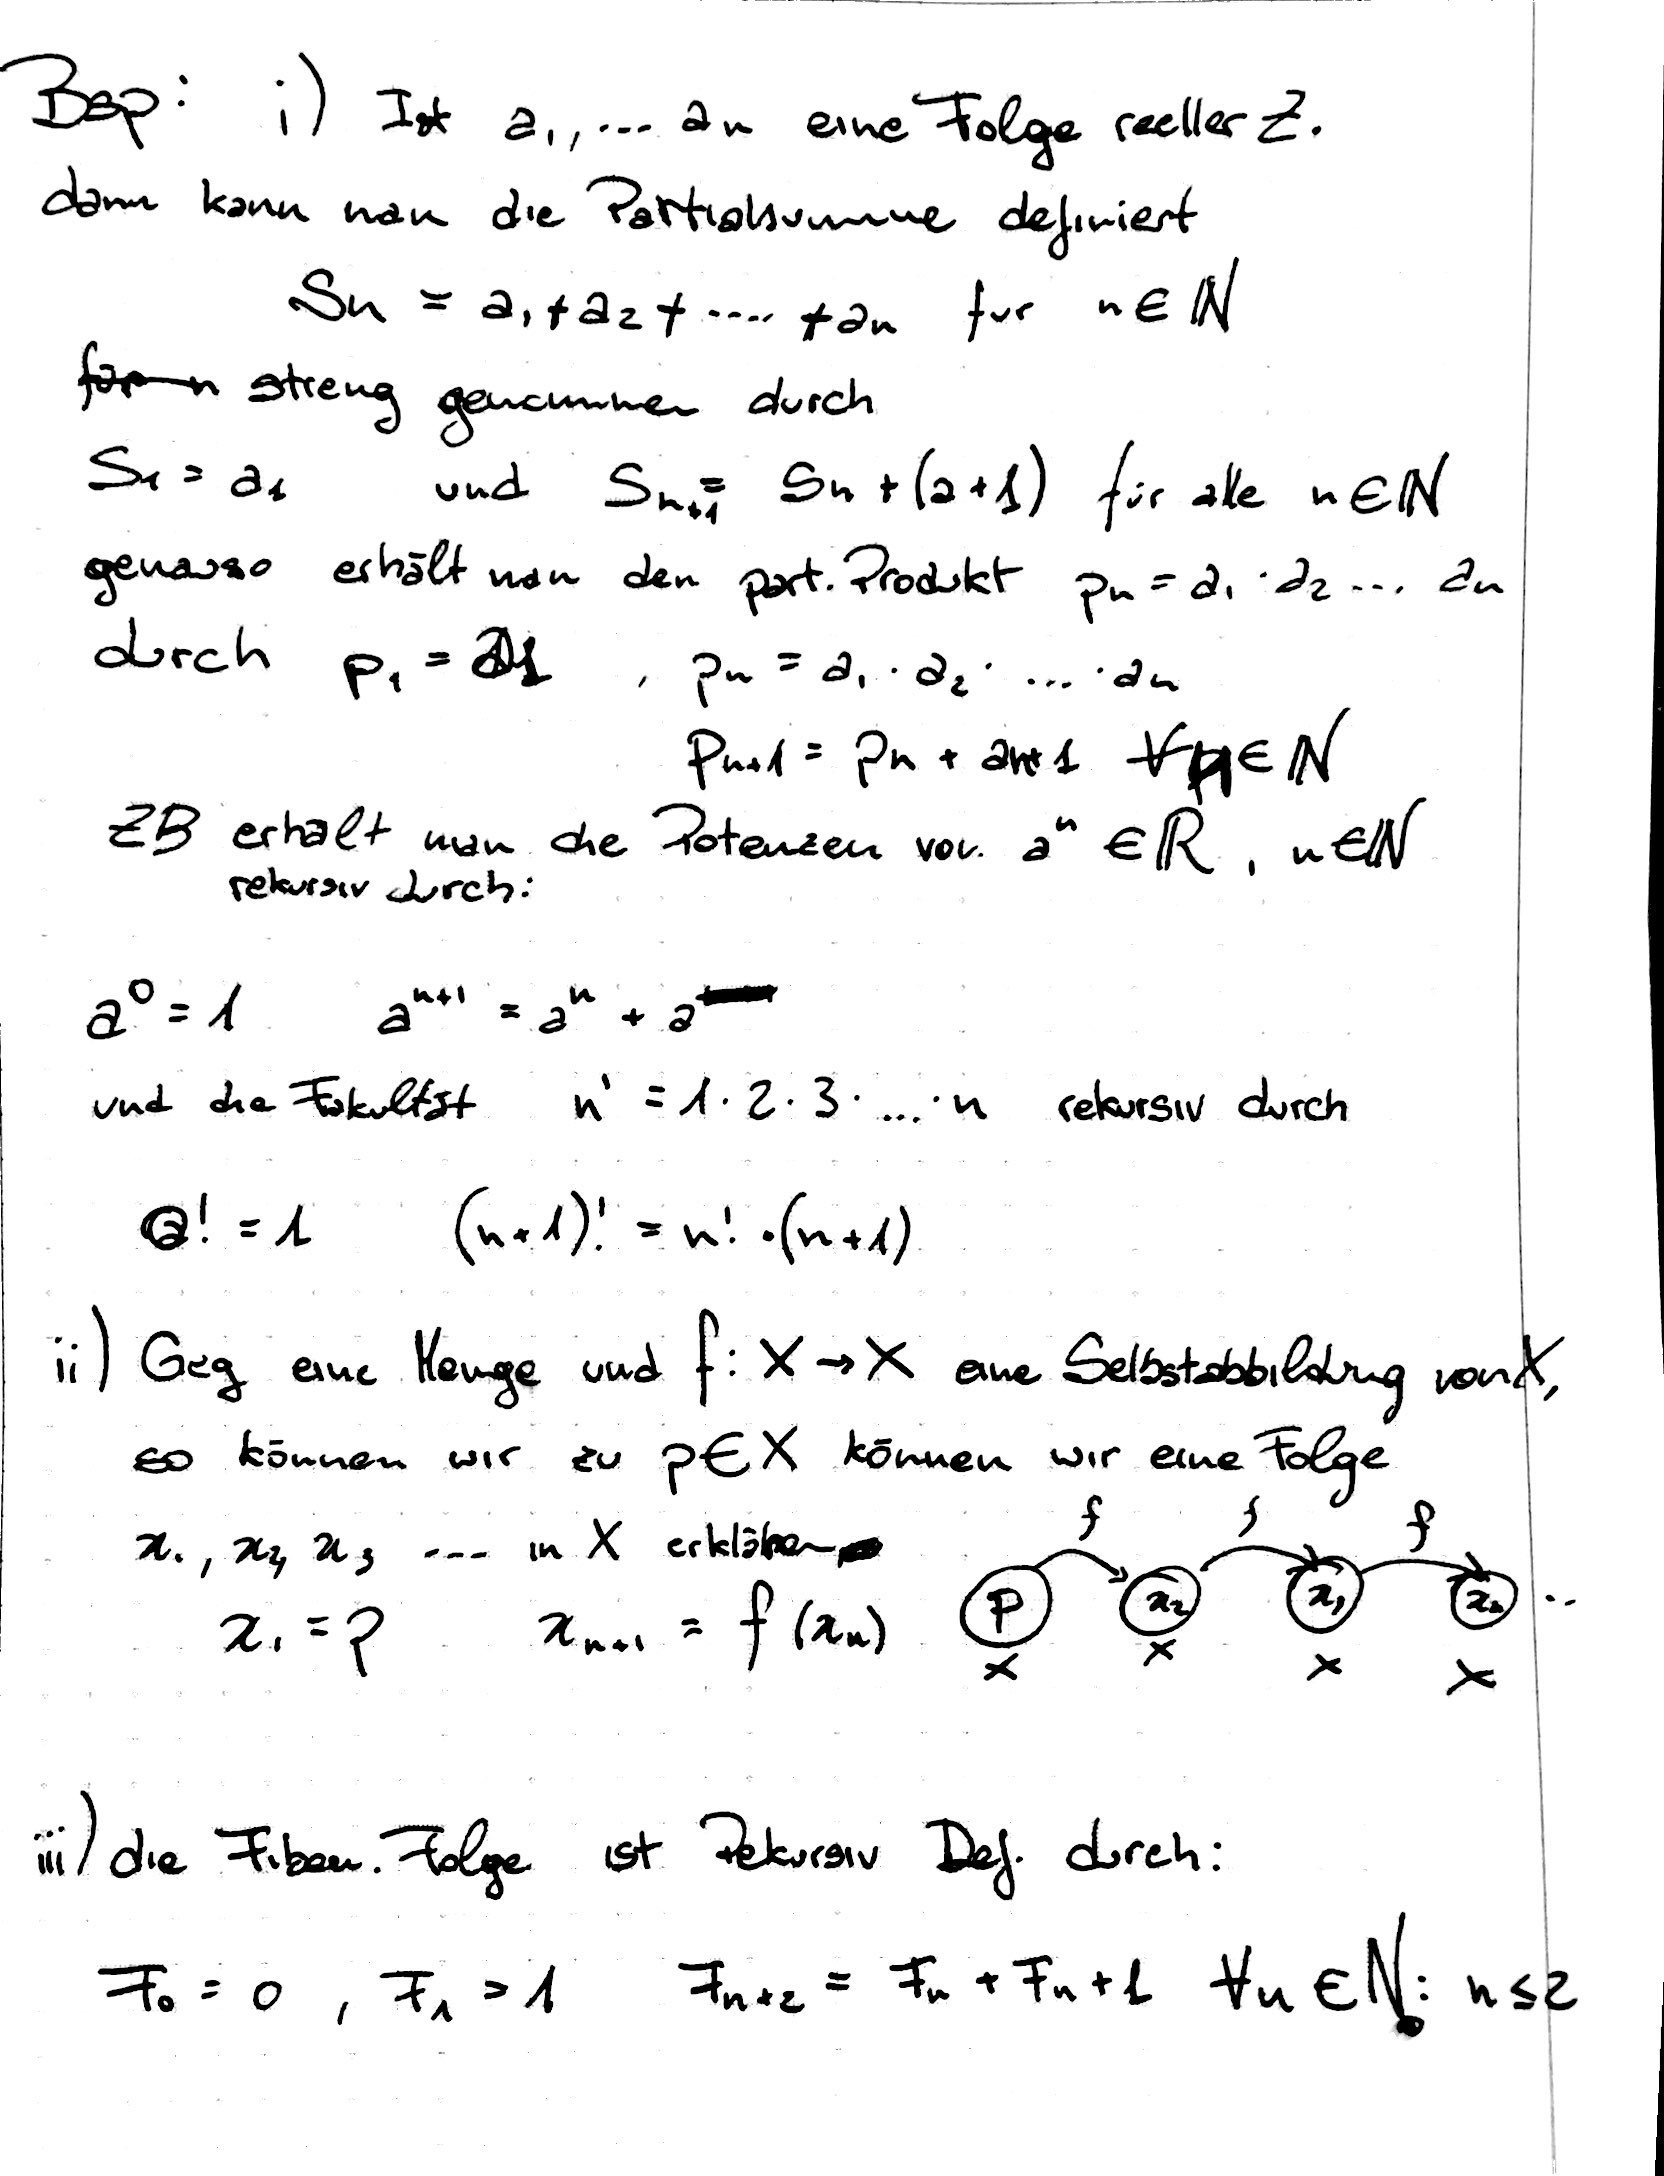 Bsp: i) Ist a₁, ... aₙ eine Folge reeller Z.
dann kann man die Partialsumme definiert
Sₙ = a₁ + a₂ + .... + aₙ für n ∈ ℕ
für n streng genommen durch
S₁ = a₁ und Sₙ₊₁ = Sₙ + (a+1) für alle n ∈ ℕ
genauso erhält man den part. Produkt pₙ = a₁ · a₂ ... aₙ
durch p₁ = a1 , pₙ = a₁ · a₂ · ... · aₙ
Pₙ₊₁ = pₙ + an+1 ∀ n ∈ ℕ
ZB erhält man die Potenzen von aⁿ ∈ ℝ, n ∈ ℕ
rekursiv durch:
a⁰ = 1 aⁿ⁺¹ = aⁿ + a
und die Fakultät n' = 1 · 2 · 3 · ... · n rekursiv durch
0! = 1 (n+1)! = n! · (n+1)
ii) Geg eine Menge und f: X → X eine Selbstabbildung von X,
so können wir zu p ∈ X können wir eine Folge
x₁, x₂, x₃ --- in X erklären
f f f
x₁ = p xₙ₊₁ = f (xₙ) p x₂ x₃ xₙ ..
X X X X
iii) die Fibon. Folge ist Rekursiv Def. durch:
F₀ = 0 , F₁ = 1 Fₙ₊₂ = Fₙ + Fₙ + 1 ∀n ∈ ℕ₀: n ≤ 2